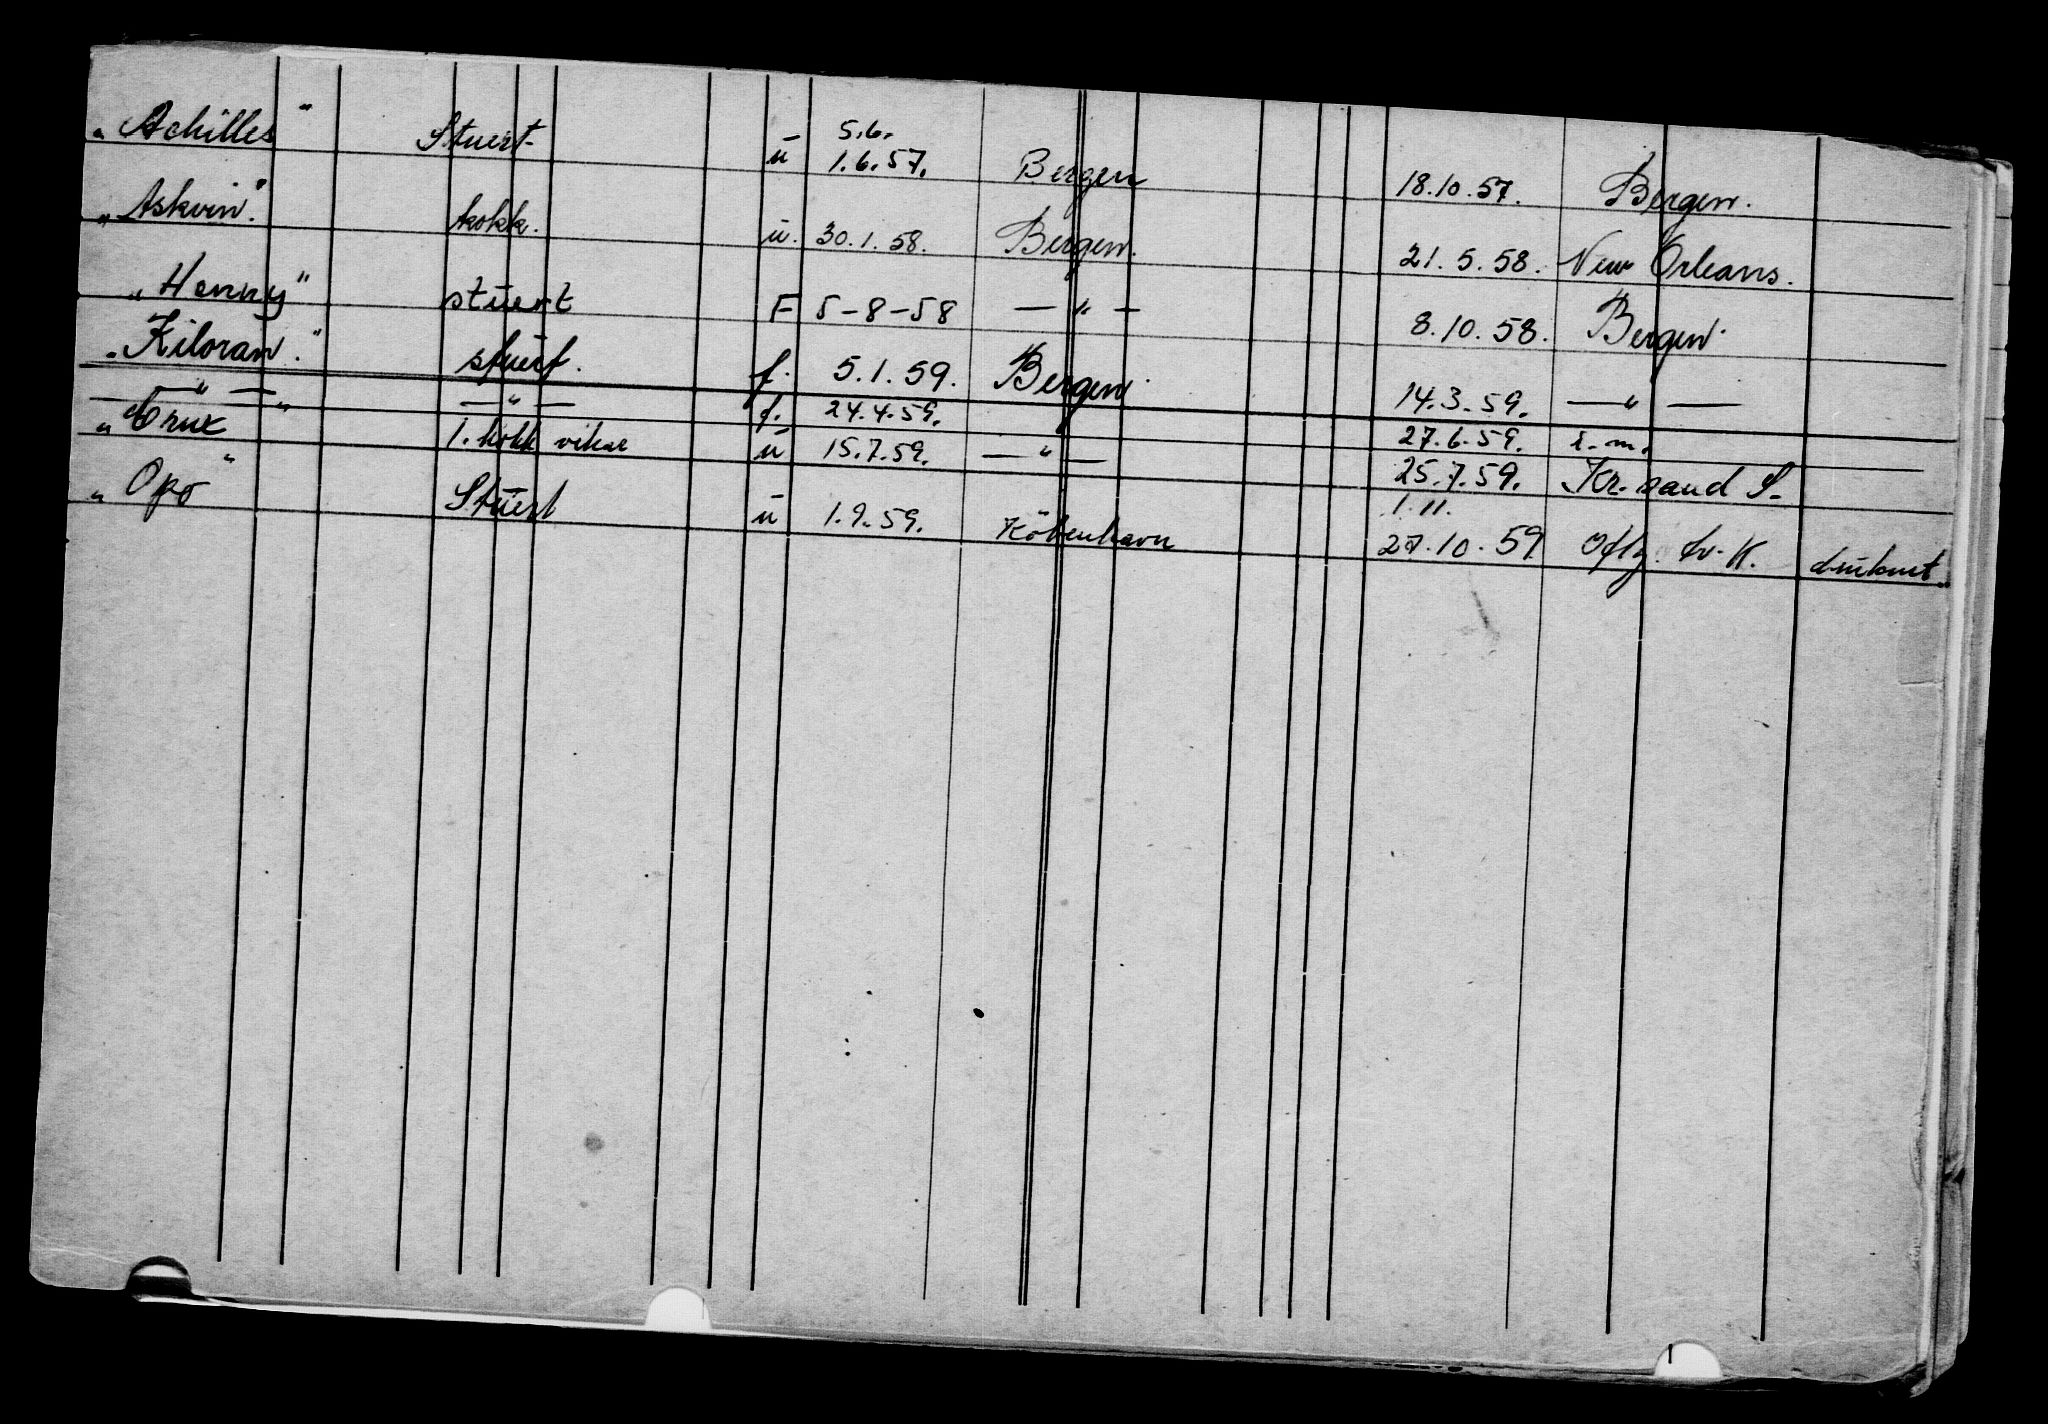 „Achilles" Stuert ū 5.6. 1.6.57. Bergen 18.10.57. Bergen.
„Askvin". kokk. ū. 30.1.58. Bergen. 21.5.58. New Orleans.
„Henny" stuert F 5-8-58 — " — 8.10.58. Bergen.
„Kiloran." stuert. f. 5.1.59. Bergen. 14.3.59. — " —
— " — — " — f. 24.4.59. 27.6.59. i.m.
„Crux" 1. kokk vikar ū 15.7.59. — " — 25.7.59. Kr.sand S.
„Opo" Stūert ū 1.9.59. Köbenhavn 1.11. 27.10.59